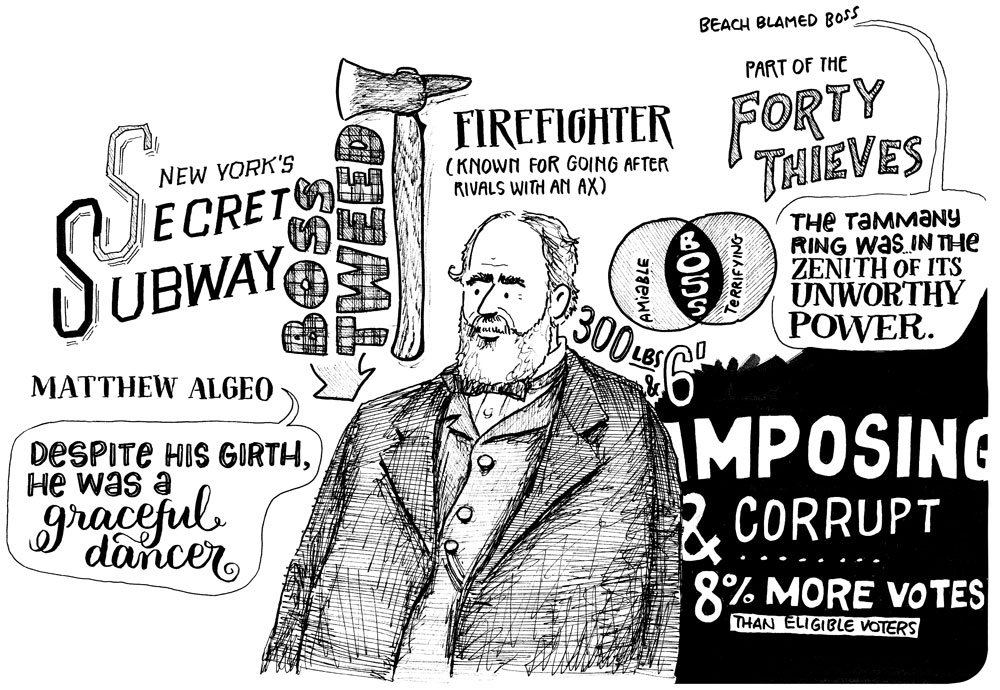 NEW YORK'S
SECRET
SUBWAY
BOSS
TWEED
FIREFIGHTER
(KNOWN FOR GOING AFTER
RIVALS WITH AN AX)
BEACH BLAMED BOSS
PART OF THE
FORTY
THIEVES
THE TAMMANY
RING WAS...IN THE
ZENITH OF ITS
UNWORTHY
POWER.
AMIABLE
BOSS
TERRIFYING
300 LBS
& 6'
MATTHEW ALGEO
DESPITE HIS GIRTH,
HE WAS A
graceful
dancer
IMPOSING
& CORRUPT
8% MORE VOTES
THAN ELIGIBLE VOTERS